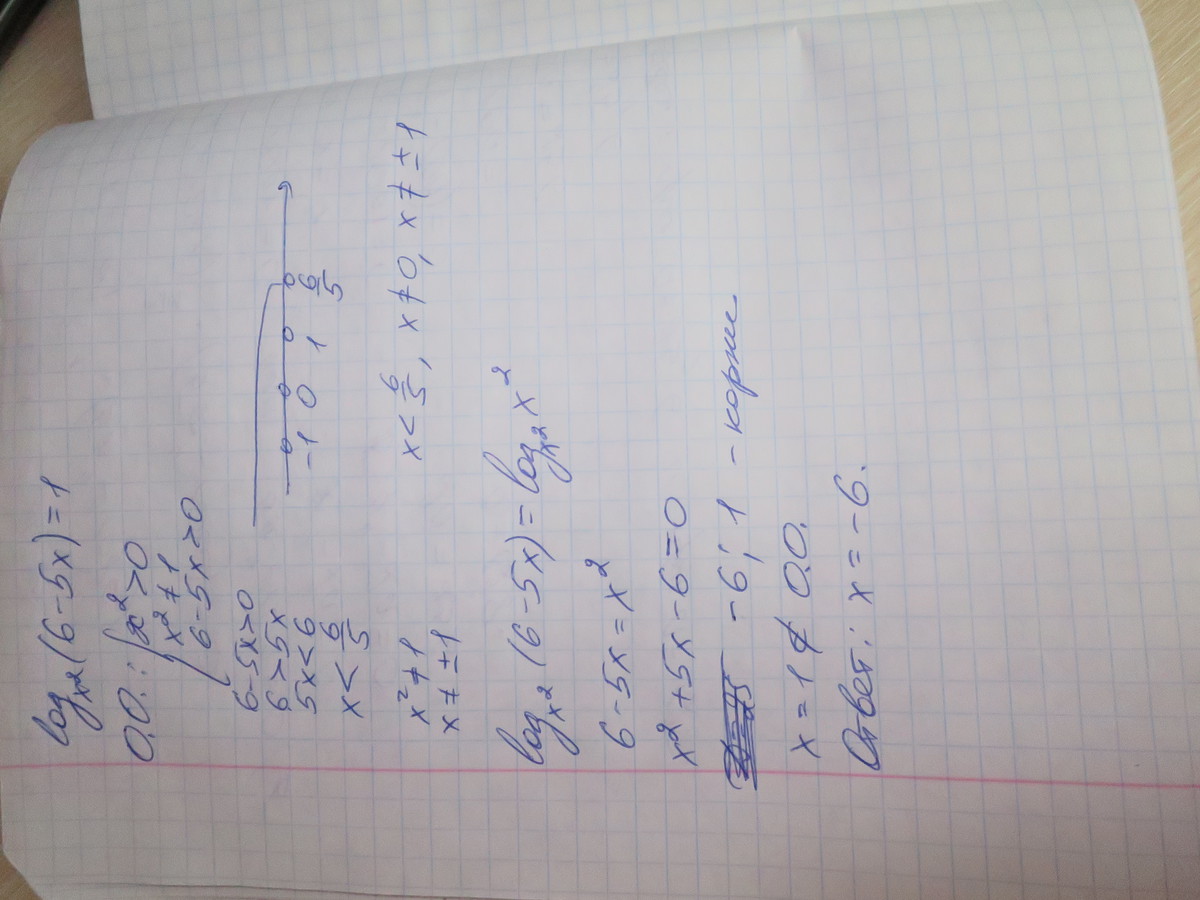 log_{x²}(6-5x)=1
О.О.: { x²>0
x²≠1
6-5x>0
6-5x>0
6>5x
5x<6
x<6/5
-1 0 1 6/5
x²≠1
x≠±1
x<6/5, x≠0, x≠±1
log_{x²}(6-5x)=log_{x²}x²
6-5x=x²
x²+5x-6=0
-6; 1 - корни
x=1∉О.О.
Ответ: x=-6.